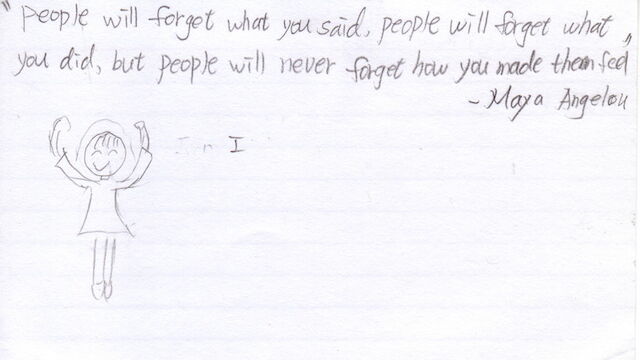 "People will forget what you said, people will forget what
you did, but people will never forget how you made them feel"
- Maya Angelou
I